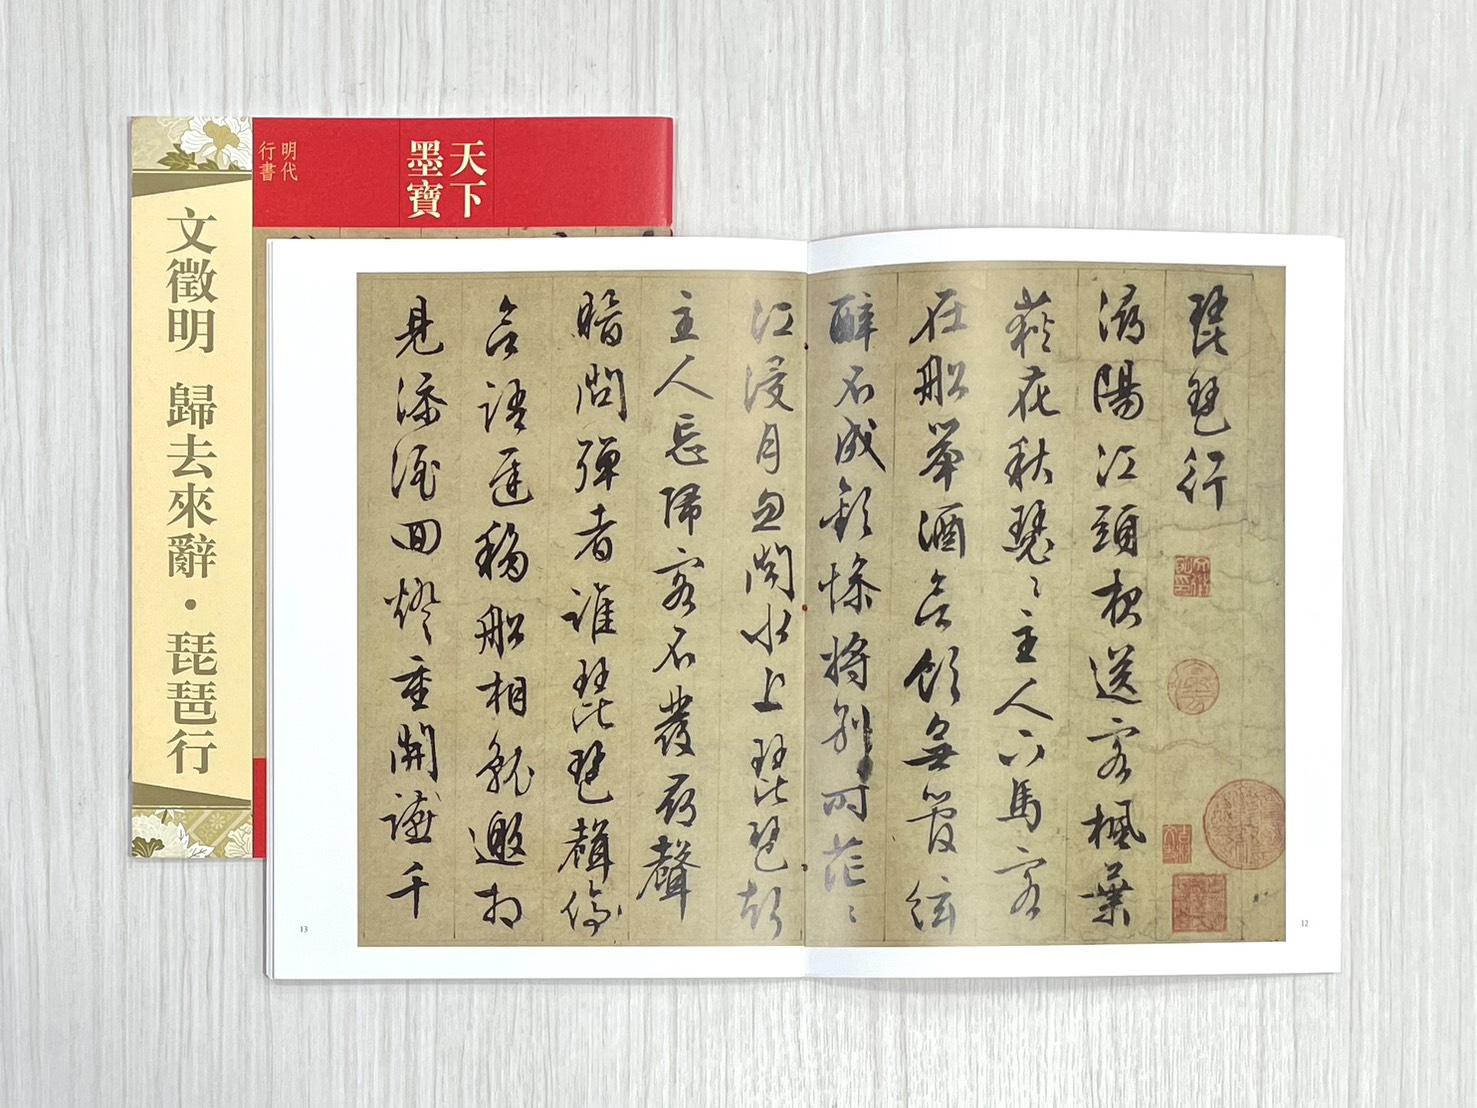 天下
墨寶
明代
行書
文徵明 歸去來辭・琵琶行
琵琶行
潯陽江頭夜送客楓葉
荻花秋瑟〻主人下馬客
在船舉酒欲飲無管絃
醉不成歡慘將別時茫〻
江浸月忽聞水上琵琶聲
主人忘歸客不發尋聲
暗問彈者誰琵琶聲停
欲語遲移船相就邀相
見添酒回燈重開讌千
12
13